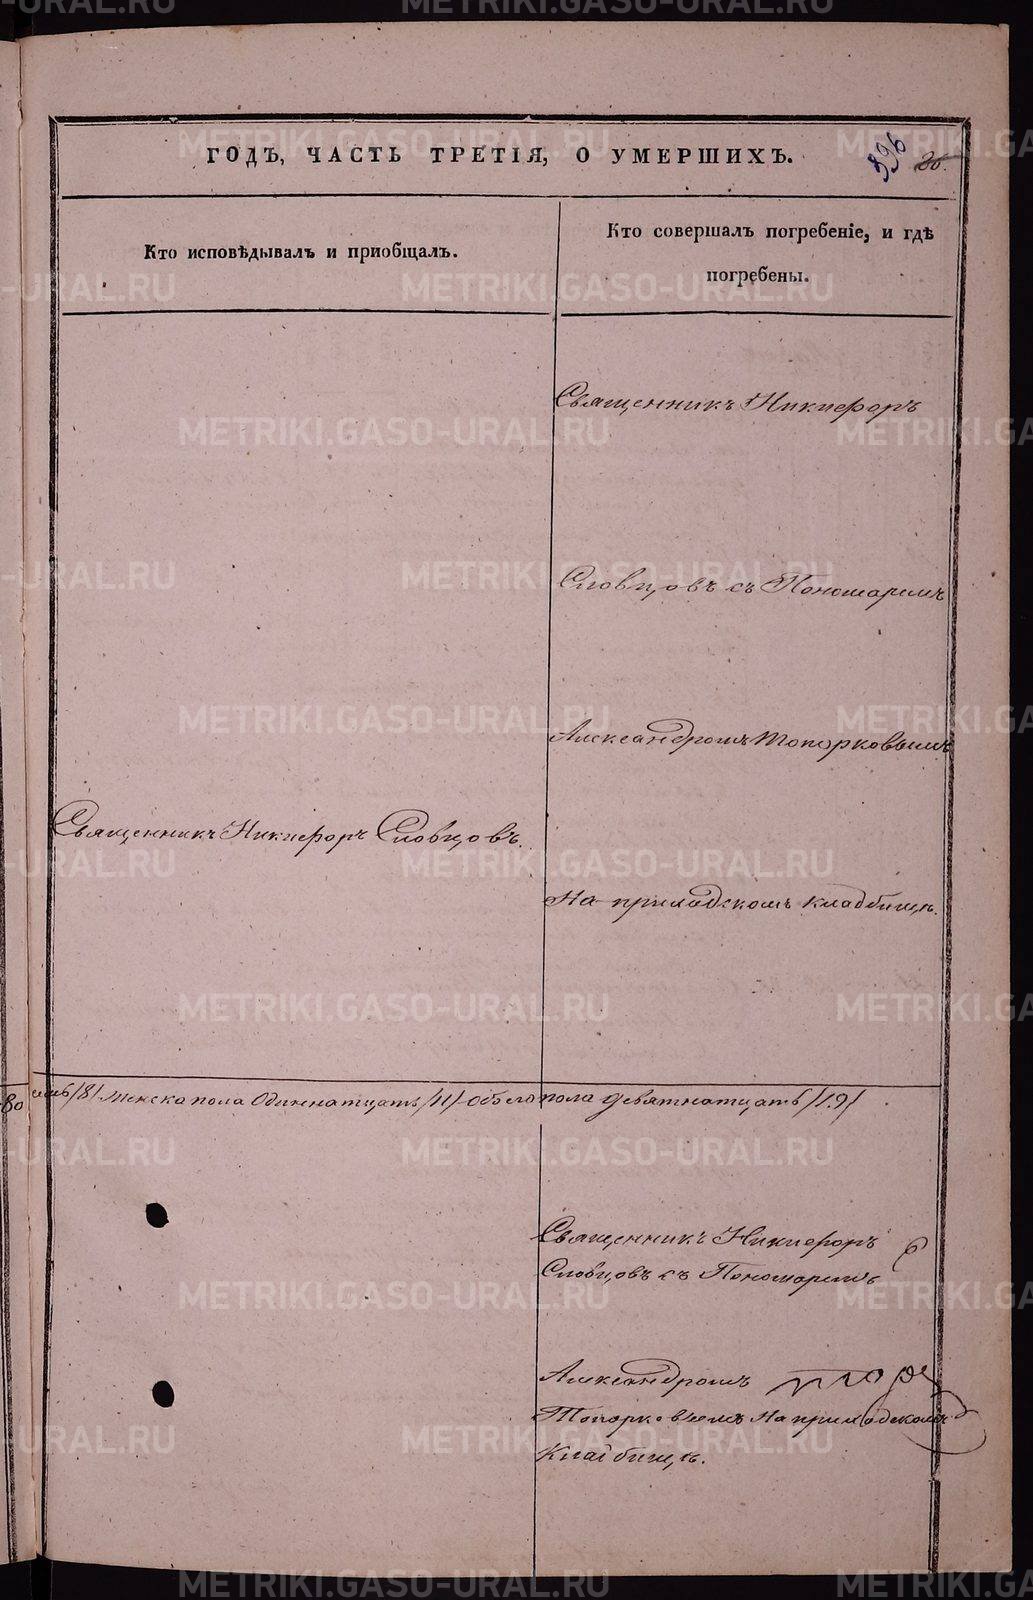 ГОДЪ, ЧАСТЬ ТРЕТІЯ, О УМЕРШИХЪ.
396
Кто исповѣдывалъ и пріобщалъ.
Кто совершалъ погребеніе, и гдѣ
погребены.
Священникъ Никифоръ
Словцовъ съ Пономаремъ
Александромъ Топорковымъ
Священникъ Никифоръ Словцовъ.
На приходскомъ кладбищѣ.
80
/8/ Женска пола Одиннатцать /11/ Обоего пола девятнатцать /19/
Священникъ Никифоръ
Словцовъ съ Пономаремъ
Александромъ
Топорковымъ На приходскомъ
Кладбищѣ.
METRIKI.GASO-URAL.RU